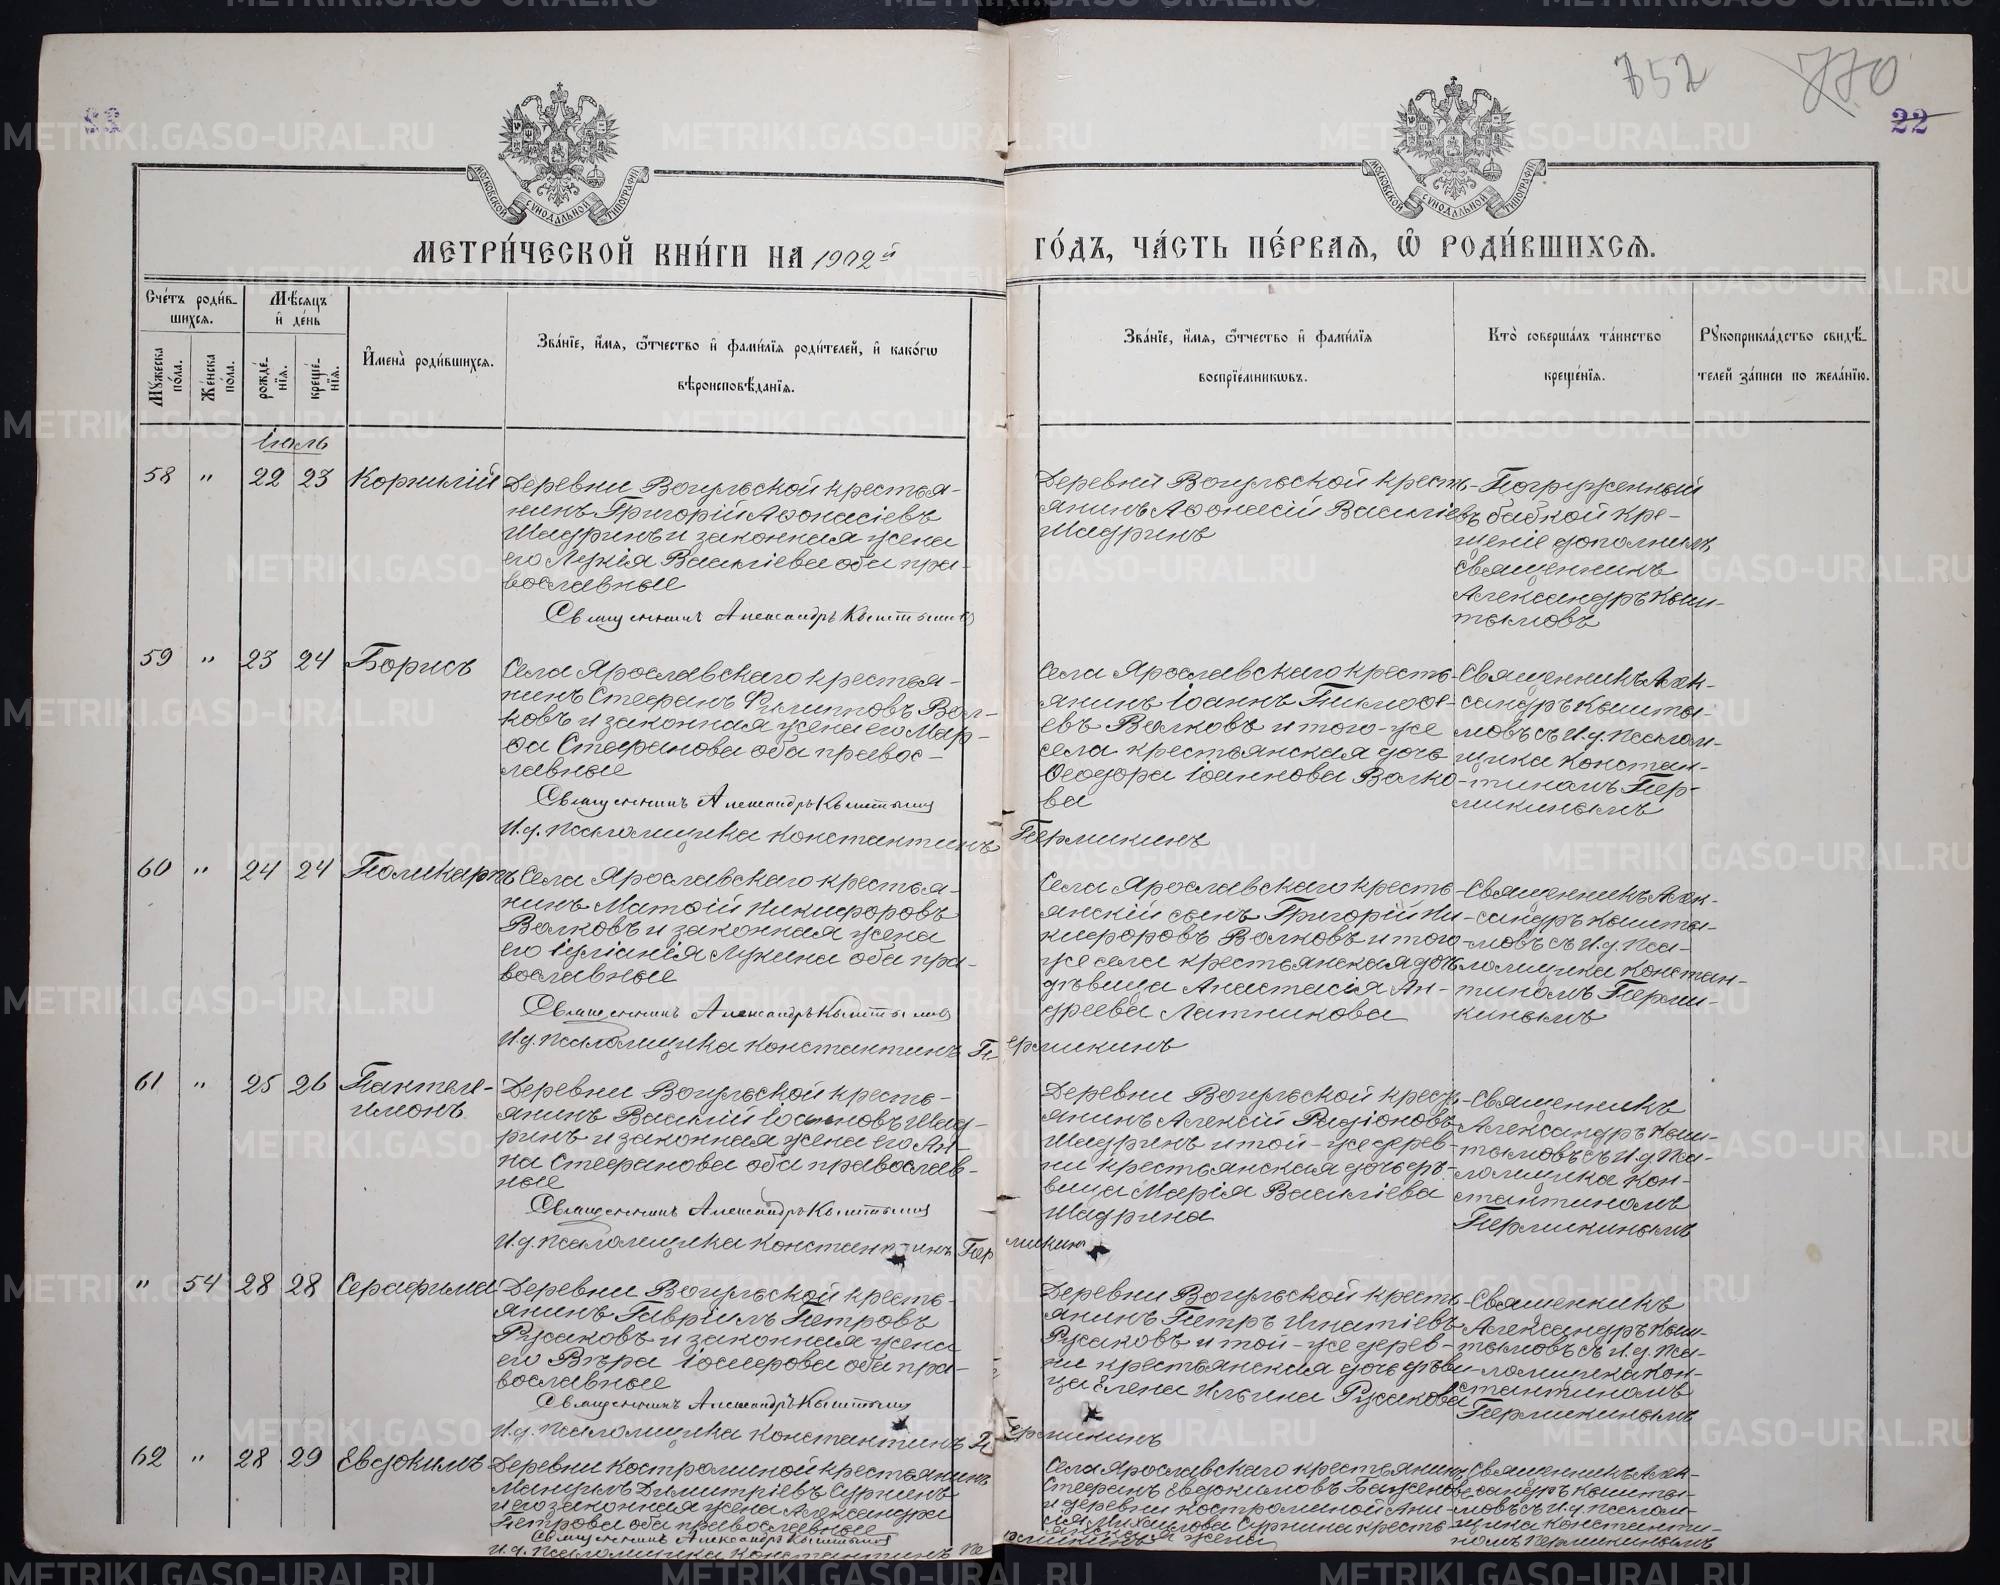 752
770
22
22
МОСКОВСКОЙ СѴНОДАЛЬНОЙ ТИПОГРАФІИ
МОСКОВСКОЙ СѴНОДАЛЬНОЙ ТИПОГРАФІИ
МЕТРИ́ЧЕСКОЙ КНИ́ГИ НА 1902й ГО́ДЪ, ЧА́СТЬ ПЕ́РВАѦ, Ѽ РОДИ́ВШИХСѦ.
Сче́тъ роди́в-
шихсѧ.
Мѣ́сѧцъ
и҆ де́нь
Мꙋ́жеска
по́ла.
Же́нска
по́ла.
рожде́-
нїѧ.
креще́-
нїѧ.
И҆мена̀ роди́вшихсѧ.
Зва́нїе, и҆́мѧ, ѻ҆́тчество и҆ фами́лїѧ роди́телей, и҆ како́гѡ
вѣроисповѣ́данїѧ.
Зва́нїе, и҆́мѧ, ѻ҆́тчество и҆ фами́лїѧ
воспрїе́мникѡвъ.
Кто̀ соверша́лъ та́инство
креще́нїѧ.
Рꙋкоприкла́дство свидѣ́-
телей за́писи по жела́нїю.
Іюль
58 " 22 23 Корнилій
Деревни Вогульской крестья-
нинъ Григорій Аѳонасіевъ
Шадринъ и законная жена
его Лукія Василіева оба пра-
вославные
Священникъ Александръ Кыштымовъ
Деревни Вогульской кресть-
янинъ Аѳонасій Василіевъ
Шадринъ
Погруженный
бабкой кре-
щеніе дополнилъ
Священникъ
Александръ Кыш-
тымовъ
59 " 23 24 Борисъ
Села Ярославскаго крестья-
нинъ Стефанъ Филипповъ Вол-
ковъ и законная жена его Мар-
ѳа Стефанова оба правос-
лавные
Священникъ Александръ Кыштымовъ
И.д. псаломщика Константинъ Пермикинъ
Села Ярославскаго кресть-
янинъ Іоаннъ Тимофе-
евъ Волковъ и того-же
села крестьянская дочь
Ѳеодора Іоаннова Волко-
ва
Священникъ Алек-
сандръ Кышты-
мовъ съ И.д. псалом-
щика Констан-
тиномъ Пер-
микинымъ
60 " 24 24 Поликарпъ
Села Ярославскаго крестья-
нинъ Матѳій Никифоровъ
Волковъ и законная жена
его Іуліанія Лукина оба пра-
вославные
Священникъ Александръ Кыштымовъ
И.д. псаломщика Константинъ Пермикинъ
Села Ярославскаго кресть-
янскій сынъ Григорій Ни-
кифоровъ Волковъ и того-
же села крестьянская дочь
дѣвица Анастасія Ан-
дреева Латникова
Священникъ Алек-
сандръ Кышты-
мовъ съ И.д. Пса-
ломщика Констан-
тиномъ Перми-
кинымъ
61 " 25 26 Пантеле-
имонъ
Деревни Вогульской кресть-
янинъ Василій Іоанновъ Шад-
ринъ и законная жена его Ан-
на Стефанова оба православ-
ные
Священникъ Александръ Кыштымовъ
И.д. псаломщика Константинъ Пермикинъ
Деревни Вогульской кресть-
янинъ Алексій Радіоновъ
Шадринъ и той-же дерев-
ни крестьянская дочь дѣ-
вица Марія Василіева
Шадрина
Священникъ
Александръ Кыш-
тымовъ съ И.д. Пса-
ломщика Кон-
стантиномъ
Пермикинымъ
" 54 28 28 Серафима
Деревни Вогульской кресть-
янинъ Гавріилъ Петровъ
Русаковъ и законная жена
его Вѣра Іосифова оба пра-
вославные
Священникъ Александръ Кыштымовъ
И.д. псаломщика Константинъ Пермикинъ
Деревни Вогульской кресть-
янинъ Петръ Игнатіевъ
Русаковъ и той-же дерев-
ни крестьянская дочь дѣви-
ца Елена Ильина Русакова
Священникъ
Александръ Кыш-
тымовъ съ И.д. Пса-
ломщика Кон-
стантиномъ
Пермикинымъ
62 " 28 29 Евдокимъ
Деревни Костроминой крестьянинъ
Мануилъ Димитріевъ Суринъ
и его законная жена Александра
Петрова оба православные
Священникъ Александръ Кыштымовъ
И.д. Псаломщика Константинъ Пермикинъ
Села Ярославскаго крестьянинъ
Стефанъ Евдокимовъ Баженовъ
и деревни Костроминой Ани-
сія Михаилова Сурнина кресть-
янская жена
Священникъ Алек-
сандръ Кышты-
мовъ съ И.д. псалом-
щика Константи-
номъ Пермикинымъ
METRIKI.GASO-URAL.RU